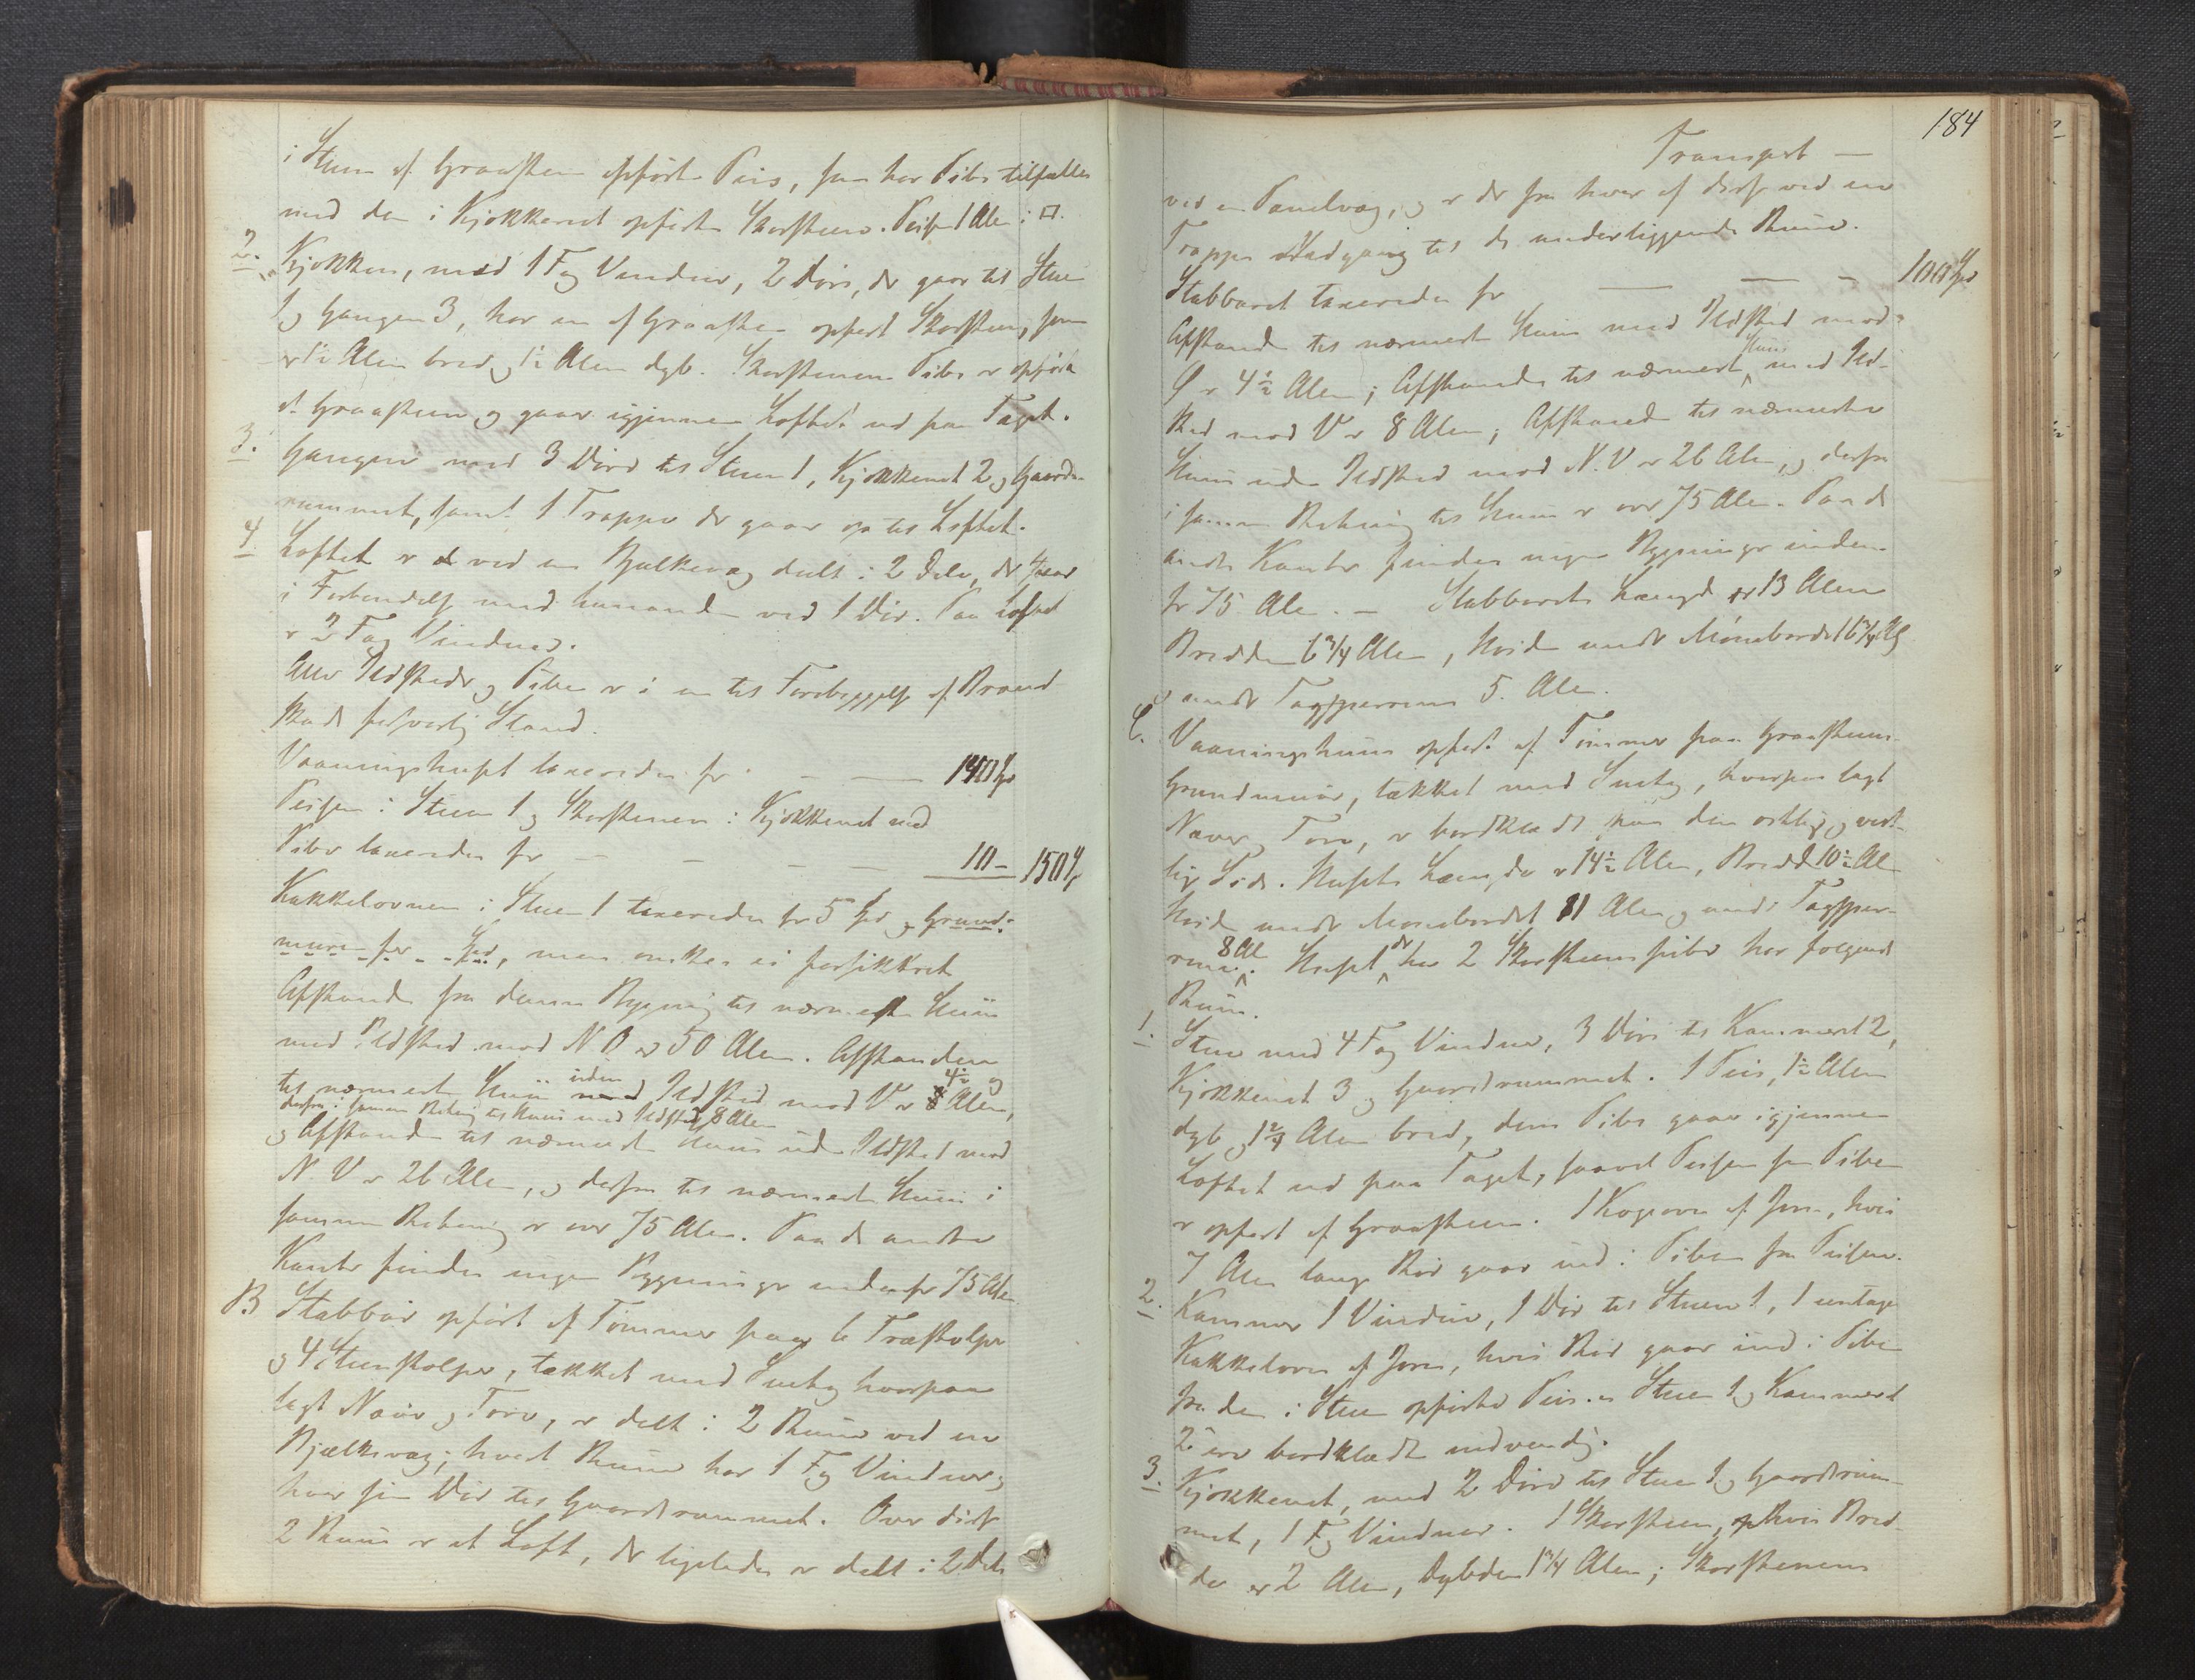 i Stuen af Graasteen opført Peis, som har Pibe tilfælles
med den i Kjøkkenet opførte Skorsteen. Peisen 1 Alen i □.
2. Kjøkken, med 1 Fag Vinduer, 2 Døre, der gaar til Stue
1 og Gangen 3, har en af Graasteen opført Skorsteen, som
er 1½ Alen bred og 1½ Alen dyb. Skorstenens Pibe er opført
af Graasteen og gaar igjennem Loftet ud paa Taget.
3. Gangen med 3 Døre til Stuen 1, Kjøkkenet 2 og Gaards-
rummet, samt 1 Trappe der gaar op til Loftet.
4. Loftet er ved en Bjelkevæg deelt i 2 Dele, der staar
i Forbindelse med hinanden ved 1 Dør. Paa Loftet
er 2 Fag Vinduer.
Alle Ildsteder og Piben er i en til Forebyggelse af Brand
skade forsvarlig Stand.
Vaaningshuset taxeredes for — — 140 Spd
Peisen i Stuen 1 og Skorstenen i Kjøkkenet med
Pibe taxeredes for — — — — 10 — 150 Spd
Kakkelovnen i Stuen 1 taxeredes for 5 Spd og Grund-
muren for Spd, men ønskes ei forsikkret
Afstanden fra denne Bygning til nærmeste Huus
med Ildsted mod N.O er 50 Alen. Afstanden
til nærmeste Huus uden Ildsted mod V er 4½ Alen, og
derfra i samme Retning til Huus med Ildsted 8 Alen
og Afstanden til nærmeste Huus uden Ildsted mod
N.V er 26 Alen, og derfra til nærmeste Huus i
samme Retning er over 75 Alen. Paa de andre
Kanter findes ingen Bygninger indenfor 75 Alen.
B Stabbur opført af Tømmer paa 6 Træstolper
og 4 Steenstolper, tækket med Sutag hvorpaa
lagt Næver og Torv, er delt i 2 Rum ved en
Bjælkevæg; hvert Rum har 1 Fag Vinduer og
hver sin Dør til Gaardsrummet. Over disse
2 Rum er et Loft, der ligeledes er delt i 2 Dele
184
Transport —
ved en Panelvæg, og er der fra hver af disse ved en
Trappe Nedgang til de underliggende Rum.
Stabburet taxeredes for — — — 100 Spd
Afstanden til nærmeste Huus med Ildsted mod
Ø er 4½ Alen; Afstanden til nærmeste Huus med Ild-
sted mod V er 8 Alen; Afstanden til nærmeste
Huus uden Ildsted mod N.V er 26 Alen, og derfra
i samme Retning til Huus er over 75 Alen. Paa de
andre Kanter findes ingen Bygninger inden-
for 75 Alen. — Stabburets Længde er 13 Alen
Bredden 6¾ Alen, Høiden under Mønebordet 6¾ Al
og under Tagsperrerne 5 Alen.
C. Vaaningshuus opført af Tømmer paa Graasteens
Grundmuur, tækket med Sutag, hvorpaa lagt
Næver og Torv, er bordklædt paa den østlige og vest-
lige Side. Husets Længde er 14½ Alen, Bredde 10½ Al
Høide under Mønebordet 11 Alen og under Tagsper-
rerne 8 Al. Huset der har 2 Skorsteenspiber har følgende
Rum.
1. Stue med 4 Fag Vinduer, 3 Døre til Kammeret 2,
Kjøkkenet 3 og Gaardsrummet. 1 Peis, 1½ Alen
dyb og 1¾ Alen bred, dens Pibe gaar igjennem
Loftet ud paa Taget, saavel Peisen som Piben
er opført af Graasteen. 1 Kogeovn af Jern, hvis
7 Alen lange Rør gaar ind i Piben fra Peisen.
2. Kammer 1 Vindue, 1 Dør til Stuen 1, 1 eentages
Kakkelovn af Jern, hvis Rør gaar ind i Piben
fra den i Stuen opførte Peis. Stuen 1 og Kammeret
2 ere bordklædt indvendig.
3. Kjøkkenet, med 2 Døre til Stuen 1 og Gaardsrum-
met, 1 Fag Vinduer. 1 Skorsteen, hvis Bred-
de er 2 Alen, Dybden 1¾ Alen; Skorstenens